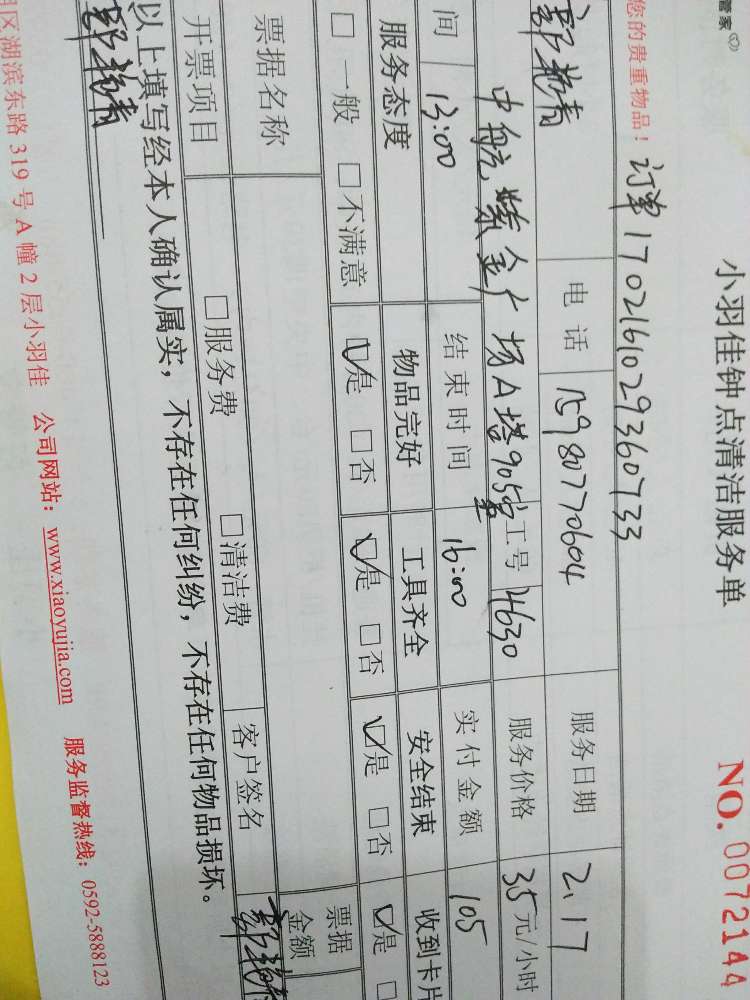 管家
小羽佳钟点清洁服务单
NO. 0072144
您的贵重物品！ 订单1702161029360733
电话 15980770604 服务日期 2.17
中航紫金广场A塔905室 工号 4630 服务价格 35元/小时
间 13:00 结束时间 16:00 实付金额 105
服务态度 物品完好 工具齐全 安全结束 收到卡片
□一般 □不满意 ☑是 □否 ☑是 □否 ☑是 □否 ☑是
票据名称 票据金额
开票项目 □服务费 □清洁费 客户签名
以上填写经本人确认属实，不存在任何纠纷，不存在任何物品损坏。
区湖滨东路319号A幢2层小羽佳 公司网站：www.xiaoyujia.com 服务监督热线：0592-5888123